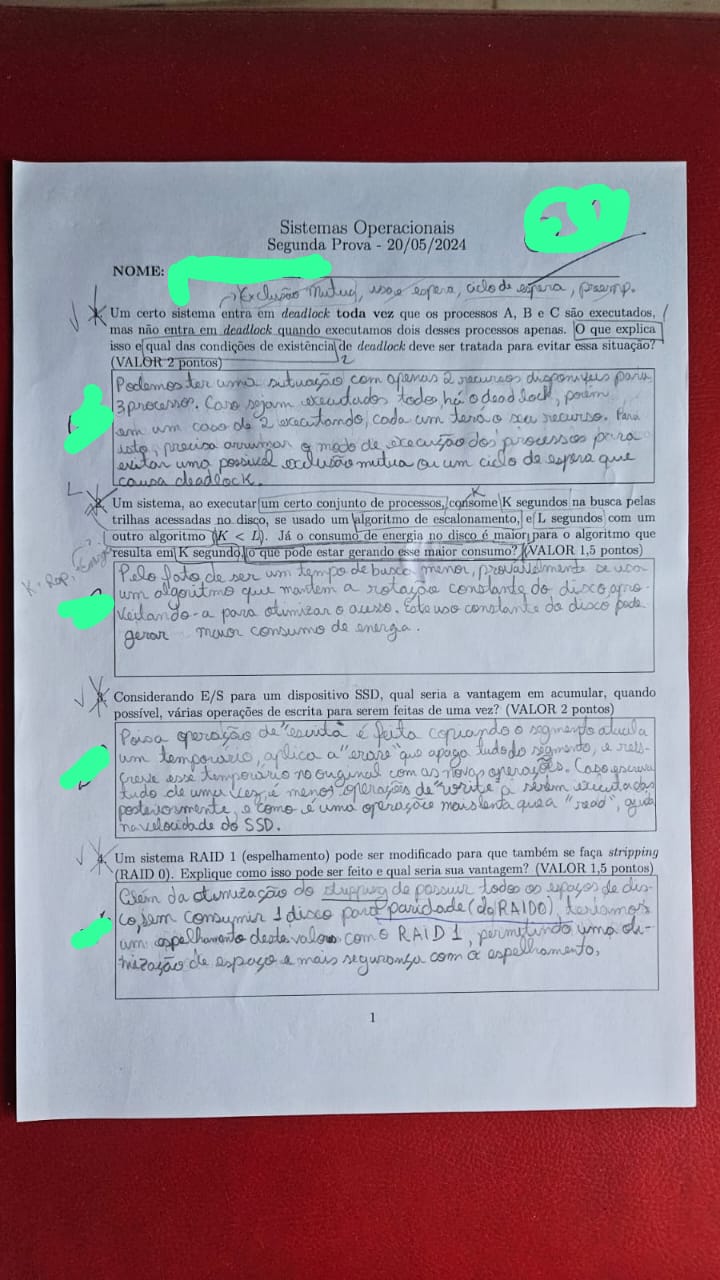 Sistemas Operacionais
Segunda Prova - 20/05/2024
NOME:
Exclusão Mutua, uso e espera, ciclo de espera, preemp.
Um certo sistema entra em deadlock toda vez que os processos A, B e C são executados,
mas não entra em deadlock quando executamos dois desses processos apenas. O que explica
isso e qual das condições de existência de deadlock deve ser tratada para evitar essa situação?
(VALOR 2 pontos)
2
Podemos ter uma sutuação com apenas 2 recursos disponiveis para
3 processo. Caso sejam executados todos, há o deadlock, porém
em um caso de 2 executando, cada um terá o seu recurso. Para
isto, precisa arrumar o modo de execução dos processos para
evitar uma possivel exclusão mutua ou um ciclo de espera que
causa deadlock.
K
Um sistema, ao executar um certo conjunto de processos, consome K segundos na busca pelas
trilhas acessadas no disco, se usado um algoritmo de escalonamento, e L segundos com um
outro algoritmo (K < L). Já o consumo de energia no disco é maior para o algoritmo que
resulta em K segundo, o que pode estar gerando esse maior consumo? (VALOR 1,5 pontos)
Pelo fato de ser um tempo de busca menor, provavelmente se usou
um algoritmo que mantem a rotação constante do disco, apro-
veitando-a para otimizar o acesso. Este uso constante do disco pode
gerar maior consumo de energa.
3. Considerando E/S para um dispositivo SSD, qual seria a vantagem em acumular, quando
possível, várias operações de escrita para serem feitas de uma vez? (VALOR 2 pontos)
Pois a operação de "escrita" é feita copiando o segmento atual a
um temporário, aplica a "erase" que apaga tudo do segmento, e
esse temporário no original com as novas operações. Caso escreva
tudo de uma vez, é menos operações de "write" p/ serem executadas
posteriormente, e como é uma operação mais lenta que a "read", ajuda
na velocidade do SSD.
4. Um sistema RAID 1 (espelhamento) pode ser modificado para que também se faça stripping
(RAID 0). Explique como isso pode ser feito e qual seria sua vantagem? (VALOR 1,5 pontos)
Além da otimização do stripping de possuir todos os espaços de dis-
co, sem consumir 1 disco para paridade (do RAID0), teriamos
um espelhamento deste valor com o RAID 1, permitindo uma oti-
mização de espaço e mais segurança com o espelhamento.
1